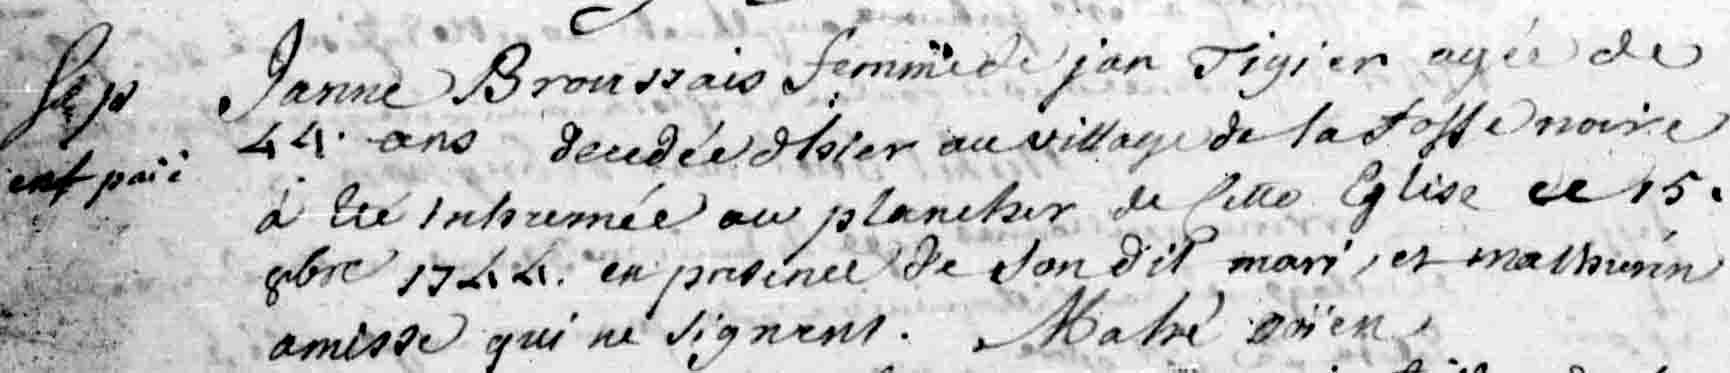 Sep
est paié
Janne Broussais femme de jan Tigier agée de
44. ans decedée d'hier au village de la fosse noire
a été inhumée au plancher de cette Eglise ce 15.
9bre 1744. en presence de son dit mari, et mathurin
amisse qui ne signent. Mahé